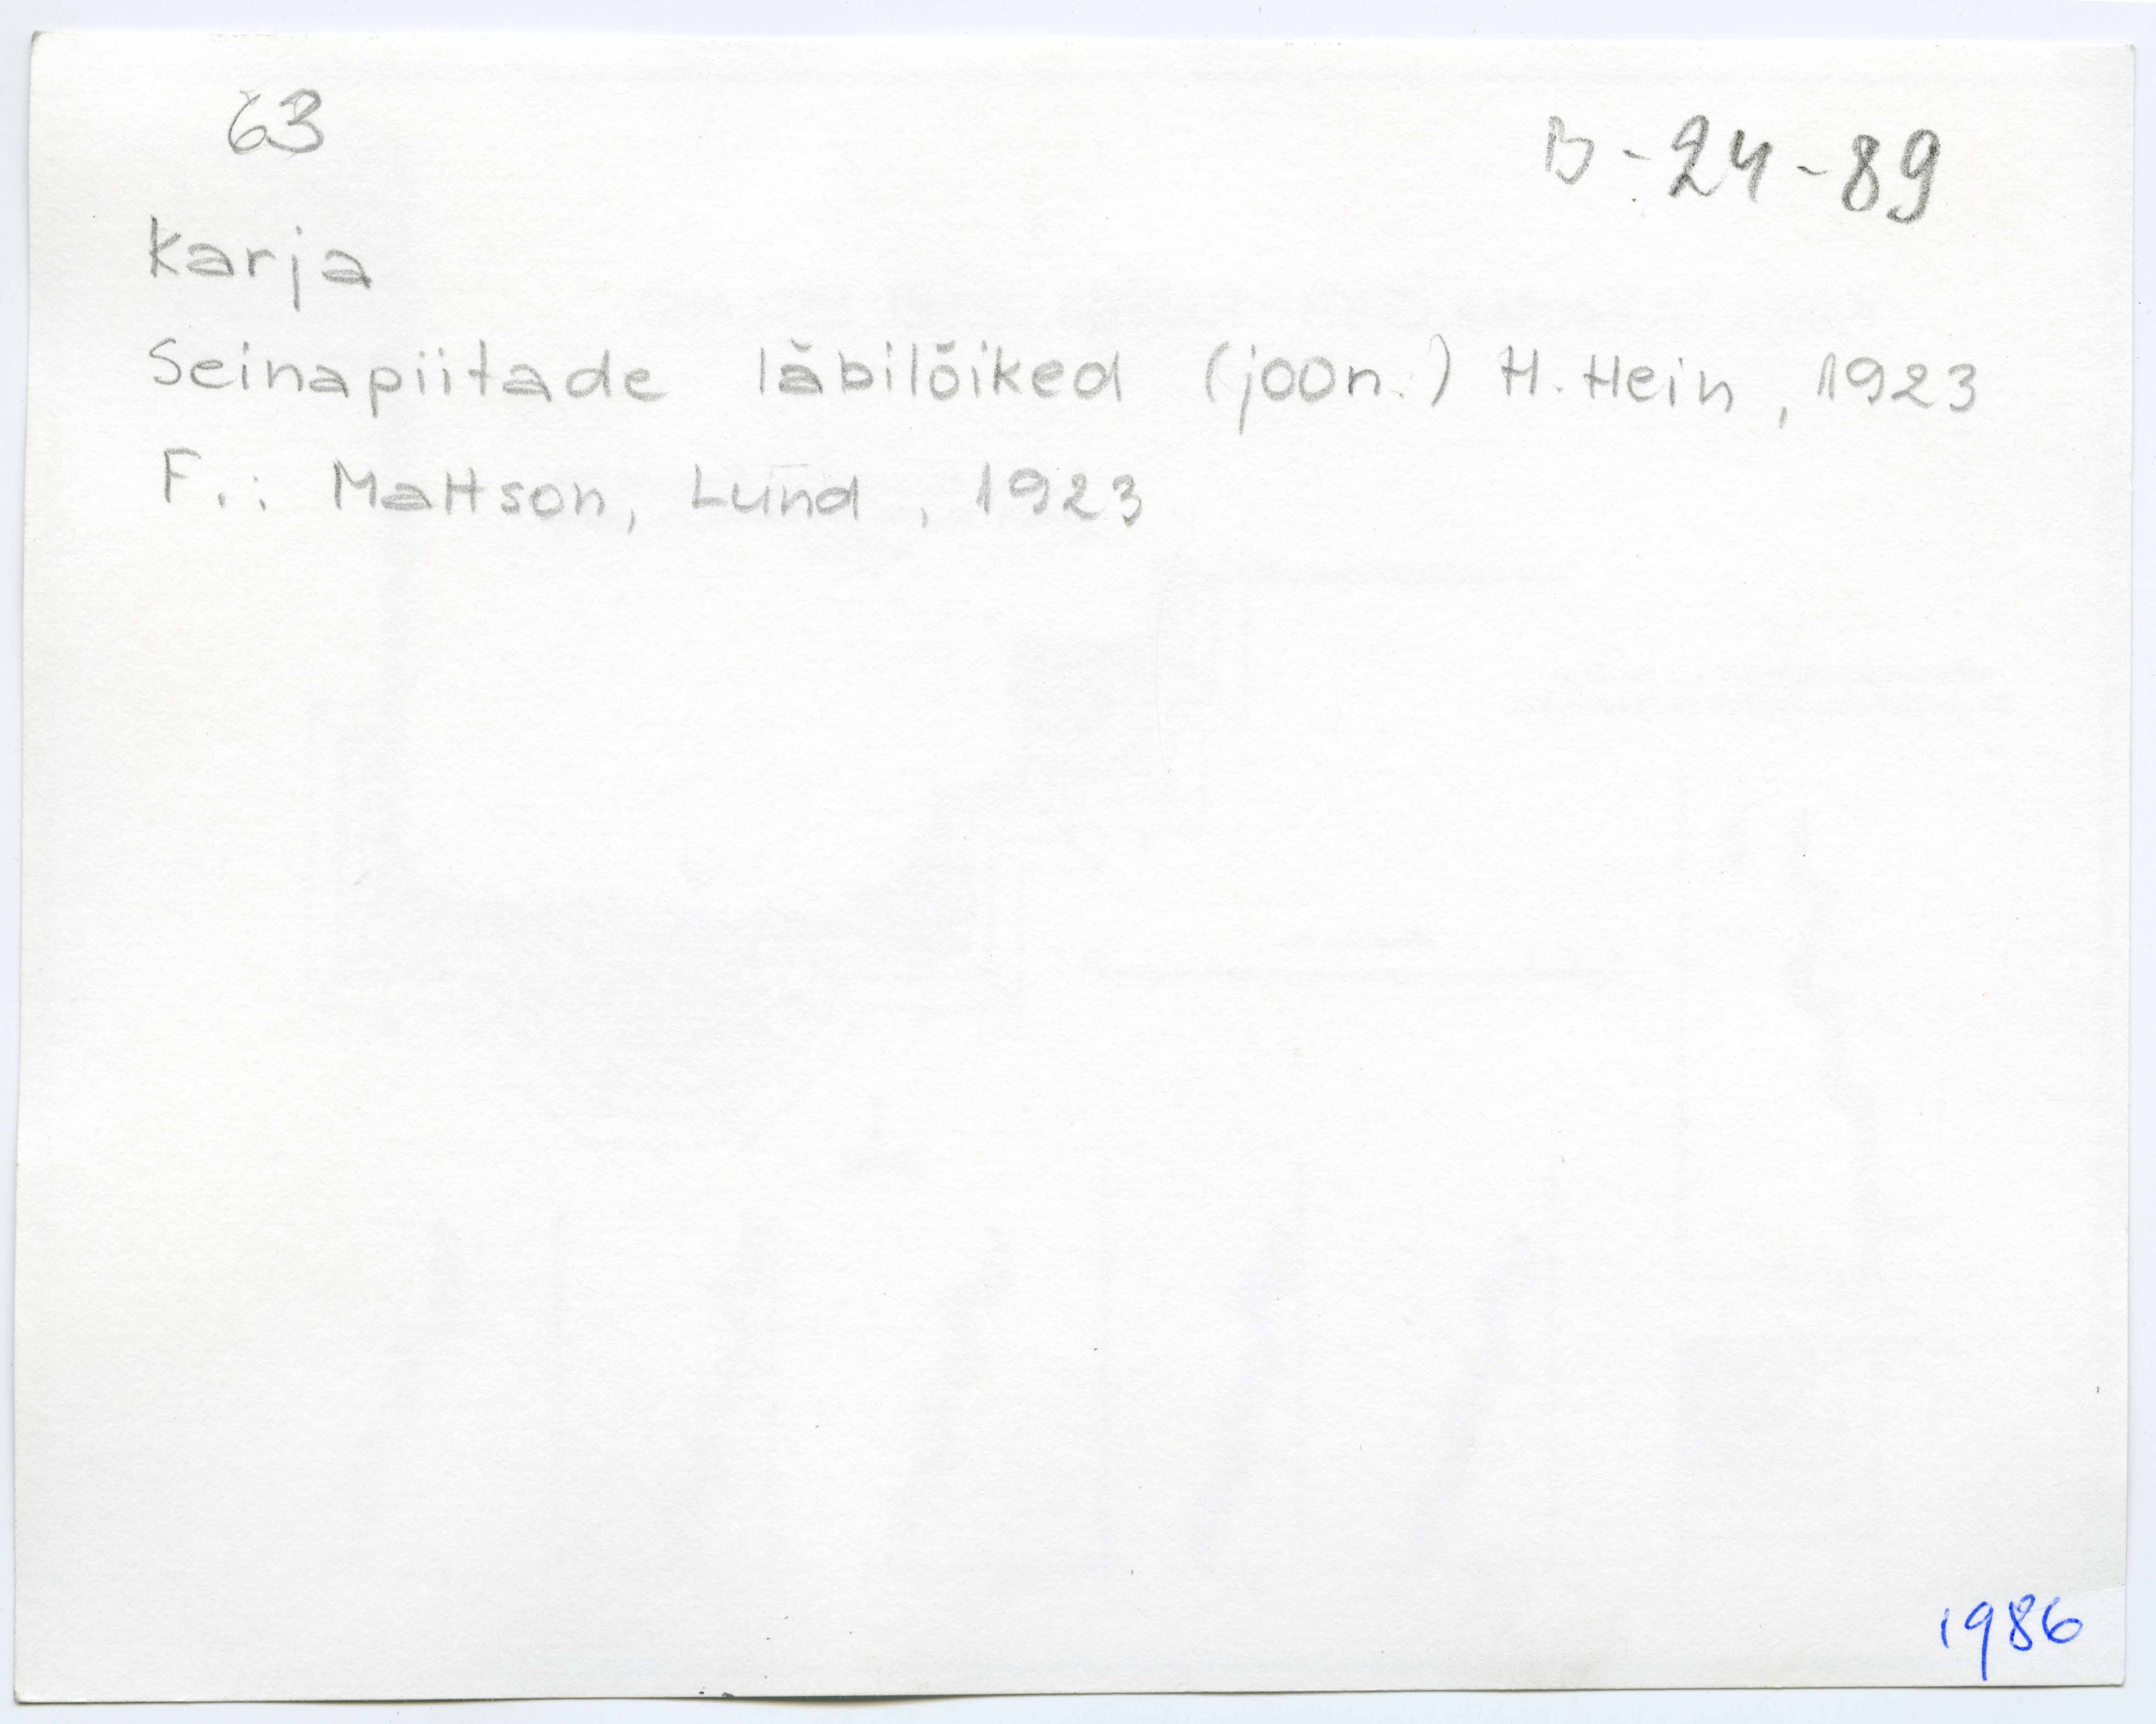 63
B-24-89
Karja
Seinapiitade läbilõiked (joon.) H. Hein, 1923
F.: Mattson, Lund, 1923
1986